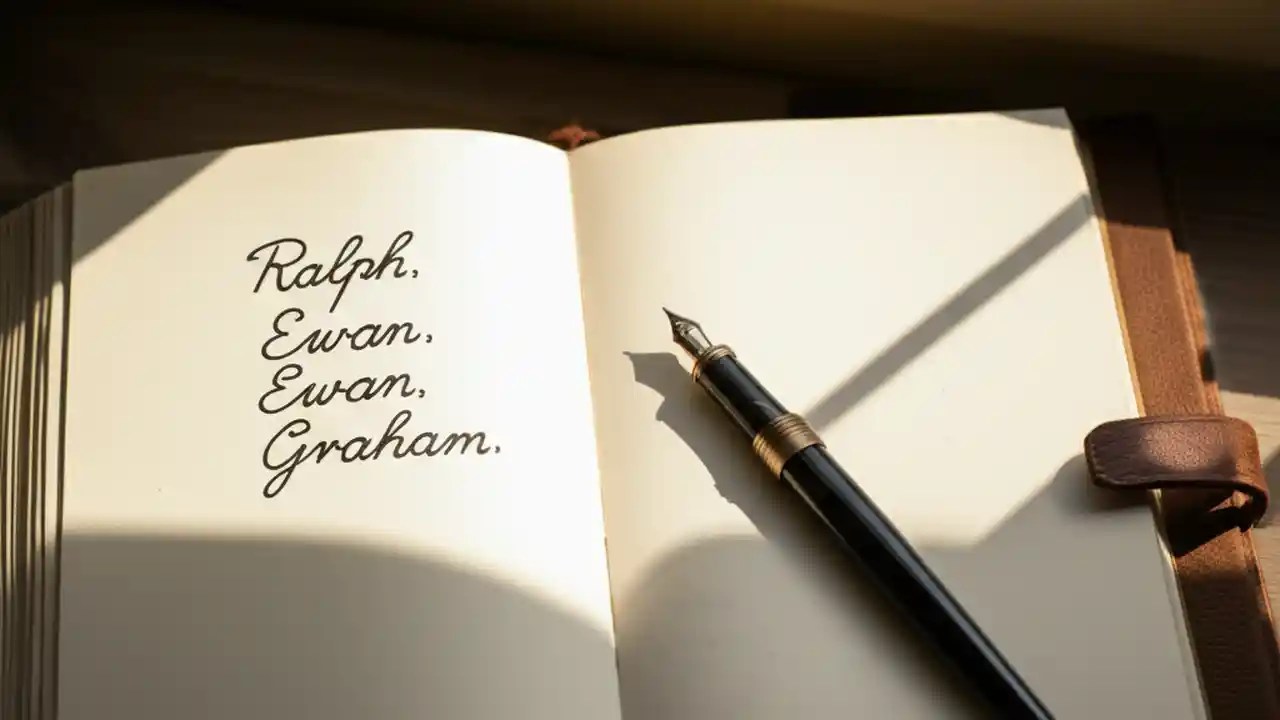 Ralph.
Ewan.
Ewan.
Graham.